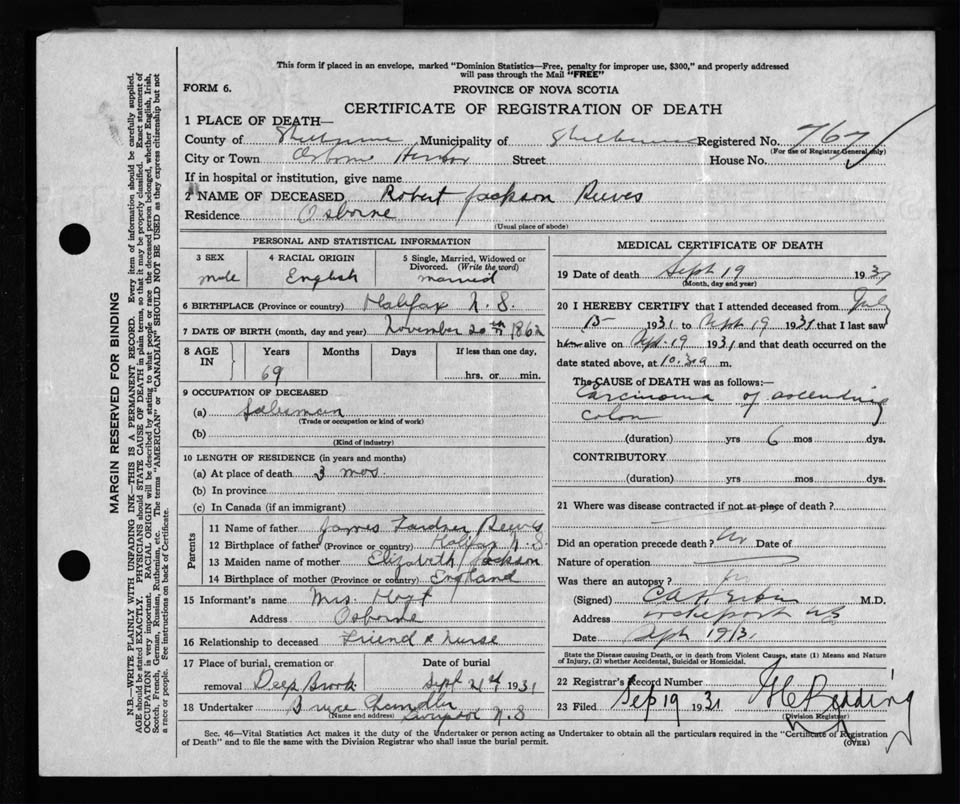 This form if placed in an envelope, marked "Dominion Statistics—Free, penalty for improper use, $300," and properly addressed
will pass through the Mail "FREE"
FORM 6.
PROVINCE OF NOVA SCOTIA
CERTIFICATE OF REGISTRATION OF DEATH
1 PLACE OF DEATH—
County of Shelburne Municipality of Shelburne Registered No. 767
(For use of Registrar General only)
City or Town Osborne Harbor Street House No.
If in hospital or institution, give name
2 NAME OF DECEASED Robert Jackson Reeves
Residence Osborne
(Usual place of abode)
PERSONAL AND STATISTICAL INFORMATION
3 SEX 4 RACIAL ORIGIN 5 Single, Married, Widowed or
Divorced. (Write the word)
male English married
6 BIRTHPLACE (Province or country) Halifax N. S.
7 DATE OF BIRTH (month, day and year) November 20th 1862
8 AGE IN Years Months Days If less than one day,
69 hrs. or min.
9 OCCUPATION OF DECEASED
(a) Salesman
(Trade or occupation or kind of work)
(b)
(Kind of industry)
10 LENGTH OF RESIDENCE (in years and months)
(a) At place of death 3 mos.
(b) In province
(c) In Canada (if an immigrant)
Parents
11 Name of father James Gardner Reeves
12 Birthplace of father (Province or country) Halifax N. S.
13 Maiden name of mother Elizabeth Jackson
14 Birthplace of mother (Province or country) England
15 Informant's name Mrs. Hoyt
Address Osborne
16 Relationship to deceased Friend & Nurse
17 Place of burial, cremation or Date of burial
removal Deep Brook Sept 21st 1931
18 Undertaker Bruce Chandler
(Name and address) Liverpool N. S
MEDICAL CERTIFICATE OF DEATH
19 Date of death Sept 19 1931
(Month, day and year)
20 I HEREBY CERTIFY that I attended deceased from July
15 1931 to Sept 19 1931 that I last saw
him alive on Sept. 19 1931 and that death occurred on the
date stated above, at 10.30 a m.
The CAUSE OF DEATH was as follows:—
Carcinoma of ascending
colon
(duration) yrs 6 mos dys.
CONTRIBUTORY
(duration) yrs mos dys.
21 Where was disease contracted if not at place of death?
Did an operation precede death? No Date of
Nature of operation
Was there an autopsy? no
(Signed) M.D.
Address Lockeport NS
Date Sept 19/31
State the Disease causing Death, or in death from Violent Causes, state (1) Means and Nature
of Injury, (2) whether Accidental, Suicidal or Homicidal.
22 Registrar's Record Number
23 Filed Sep 19 1931 H C Redding
(Division Registrar)
Sec. 46—Vital Statistics Act makes it the duty of the Undertaker or person acting as Undertaker to obtain all the particulars required in the "Certificate of Registration
of Death" and to file the same with the Division Registrar who shall issue the burial permit.
(OVER)
MARGIN RESERVED FOR BINDING
N.B.—WRITE PLAINLY WITH UNFADING INK—THIS IS A PERMANENT RECORD. Every item of information should be carefully supplied.
AGE should be stated EXACTLY. PHYSICIANS should STATE CAUSE OF DEATH in plain terms, so that it may be properly classified. Exact statement of
OCCUPATION is very important. RACIAL ORIGIN will be described by stating to what people or race the deceased person belonged, whether English, Irish,
Scotch, French, German, Russian, Ruthenian, etc. The terms "AMERICAN" or "CANADIAN" SHOULD NOT BE USED as they express citizenship but not
a race or people. See instructions on back of Certificate.